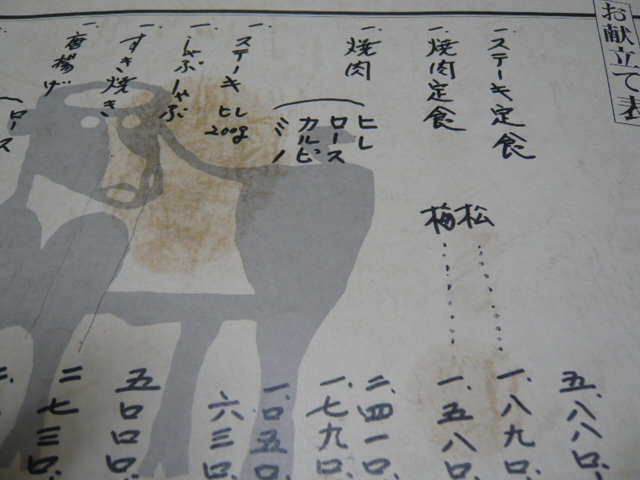 お献立て表
一、ステーキ定食 五、八八〇、
一、焼肉定食 松 一、八九〇、
梅 一、五八〇、
一、焼肉 ヒレ 二、四一〇、
ロース 一、七九〇、
カルビ 一、〇五〇、
ミノ 六三〇、
一、ステーキ ヒレ 200g 五〇〇〇、
一、しゃぶしゃぶ 二七三〇、
一、すき焼き 二、
唐揚げ
ロース